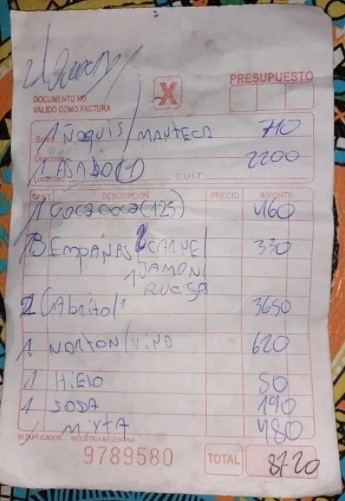 DOCUMENTO NO
VALIDO COMO FACTURA
X
PRESUPUESTO
1 ÑOQUIS/MANTECA 710
1 ASADO(1) 2200
C.U.I.T.
CANT. DESCRIPCION PRECIO IMPORTE
1 COCACOCA(125) 460
3 EMPAÑAS 2 CARNE/ 330
1 JAMON/
QUESO
2 CABRITO/ 3650
1 NORTON/VINO 620
1 HIELO 80
1 SODA 190
1 MIXTA 480
INDUSTRIA ARGENTINA
9789580
TOTAL 8720